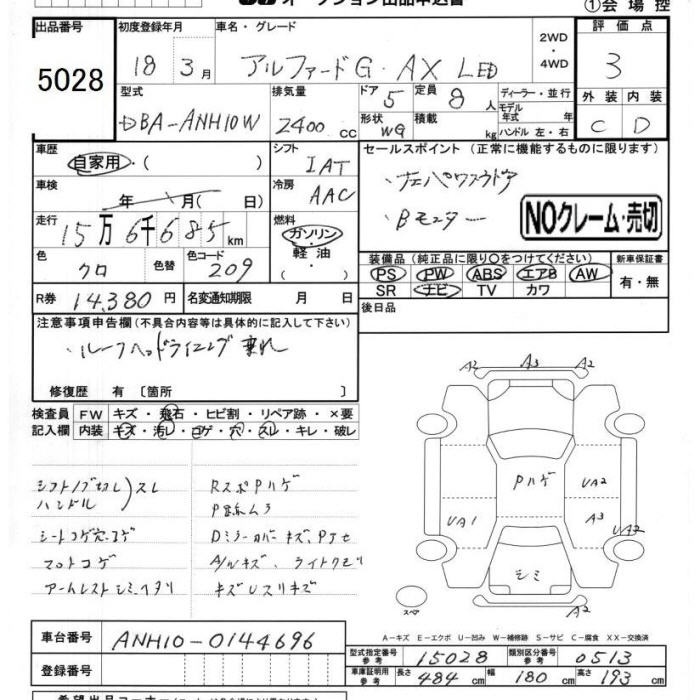 ①会場控
出品番号 5028
初度登録年月 18 3月
車名・グレード アルファードG・AX LED
2WD・4WD
評価点 3
型式 DBA-ANH10W
排気量 2400 cc
ドア 5 定員 8 人
形状 WG 積載 kg
ディーラー・並行
モデル年式 年
ハンドル 左・右
外装 C 内装 D
車歴 自家用・( )
シフト IAT
冷房 AAC
車検 年 月( 日)
走行 15万6千685km
燃料 ガソリン・軽油・( )
色 クロ 色替 色コード 209
R券 14,380円 名変通知期限 月 日
セールスポイント(正常に機能するものに限ります)
・左パワスラドア
・Bモニター
NOクレーム・売切
装備品(純正品に限り○をつけてください) 新車保証書
PS PW ABS エアB AW 有・無
SR ナビ TV カワ
後日品
注意事項申告欄(不具合内容等は具体的に記入して下さい)
・ルーフヘッドライニング垂れ
修復歴 有〔箇所 〕
検査員 FW キズ・飛石・ヒビ割・リペア跡・×要
記入欄 内装 キズ・汚レ・コゲ・穴・スレ・キレ・破レ
シフトノブ切レ)スレ
ハンドル
シートコゲ穴コゲ
マットコゲ
アームレストシミヘタリ
RスポPハゲ
Dミラーカバーキズ、
A/Wキズ、ライトクモリ
キズUスリキズ
A2 A3 A2
Pハゲ
UA2
A3
UA2
UA1
シミ
A2
スペア
A-キズ E-エクボ U-凹み W-補修跡 S-サビ C-腐食 XX-交換済
車台番号 ANH10-0144696
登録番号
型式指定番号 参考 15028 類別区分番号 参考 0513
車庫証明用 参考 長さ 484cm 幅 180cm 高さ 193cm